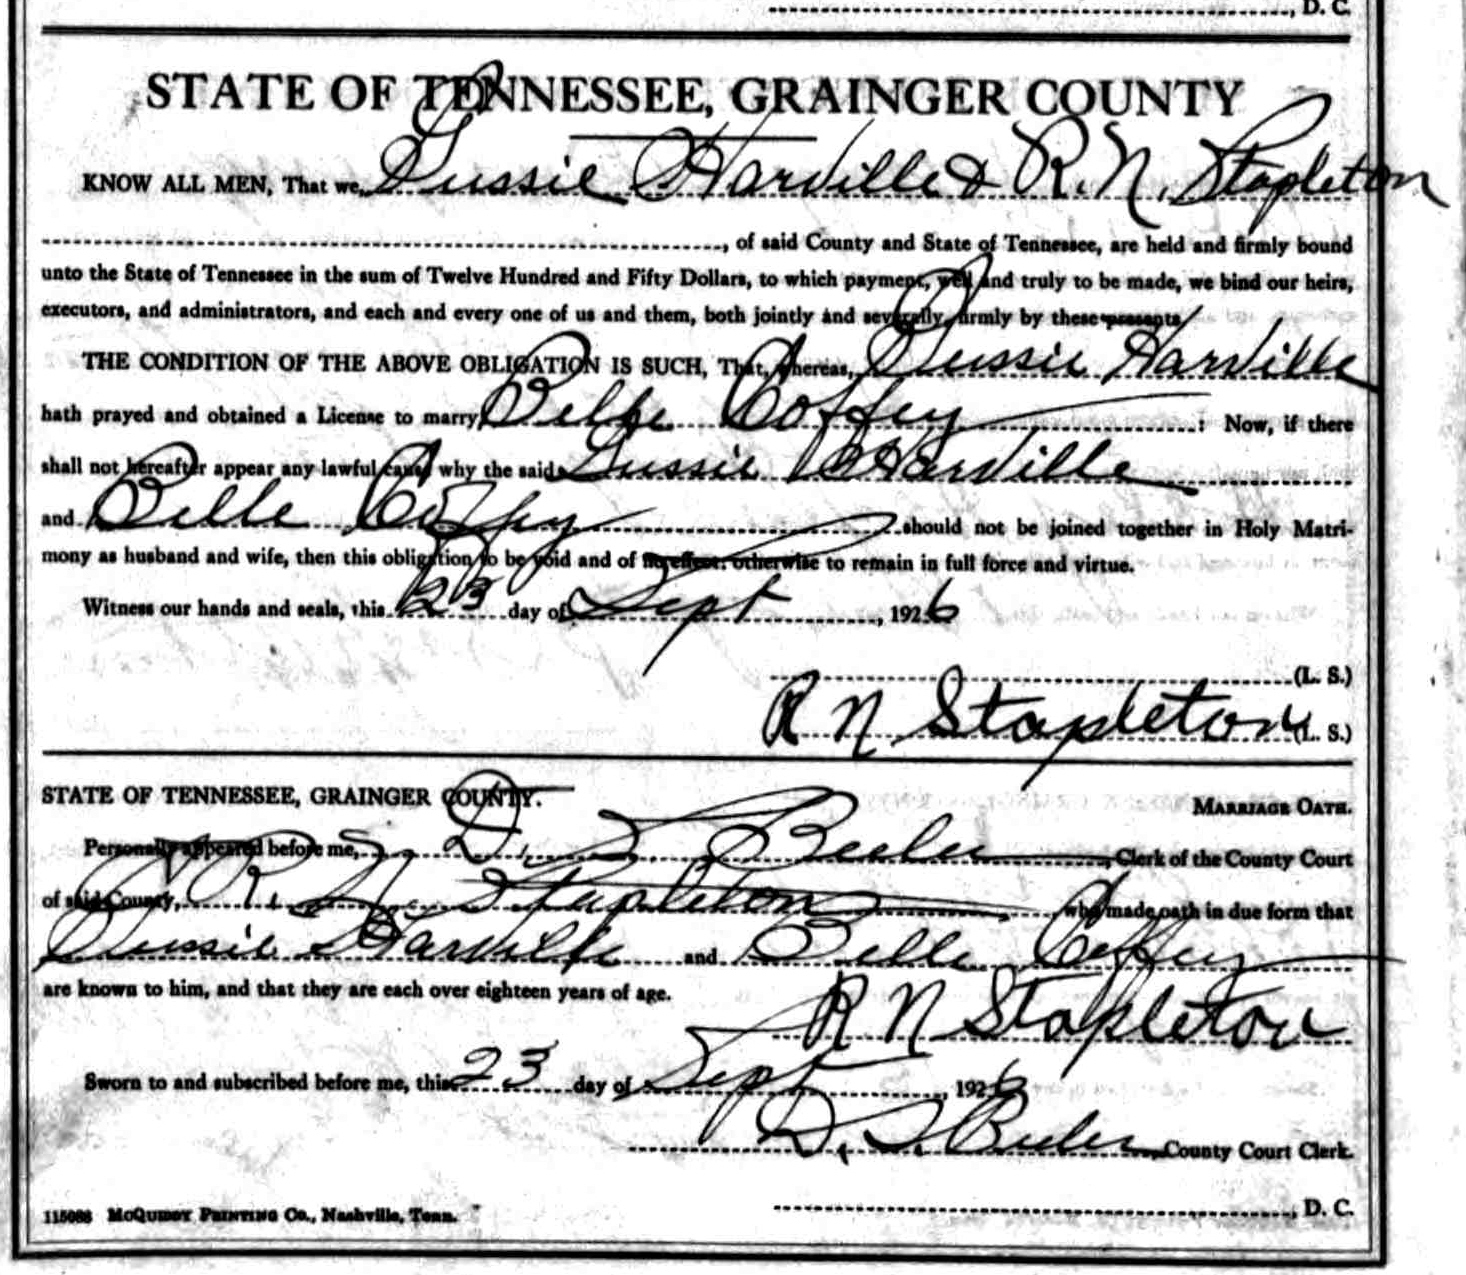 , D. C.
STATE OF TENNESSEE, GRAINGER COUNTY
KNOW ALL MEN, That we, Gussie Harville & R. N. Stapleton
, of said County and State of Tennessee, are held and firmly bound
unto the State of Tennessee in the sum of Twelve Hundred and Fifty Dollars, to which payment, well and truly to be made, we bind our heirs,
executors, and administrators, and each and every one of us and them, both jointly and severally, firmly by these presents
THE CONDITION OF THE ABOVE OBLIGATION IS SUCH, That, whereas, Gussie Harville
hath prayed and obtained a License to marry Belle Coffey : Now, if there
shall not hereafter appear any lawful cause why the said Gussie Harville
and Belle Coffey should not be joined together in Holy Matri-
mony as husband and wife, then this obligation to be void and of no effect: otherwise to remain in full force and virtue.
Witness our hands and seals, this 23 day of Sept , 1926
(L. S.)
R N Stapleton (L. S.)
STATE OF TENNESSEE, GRAINGER COUNTY. MARRIAGE OATH.
Personally appeared before me, D. S. Beeler , Clerk of the County Court
of said County, R. N. Stapleton who made oath in due form that
Gussie Harville and Belle Coffey
are known to him, and that they are each over eighteen years of age.
R N Stapleton
Sworn to and subscribed before me, this 23 day of Sept , 1926
D. S. Beeler County Court Clerk.
115088 MCQUIDDY PRINTING CO., Nashville, Tenn. , D. C.